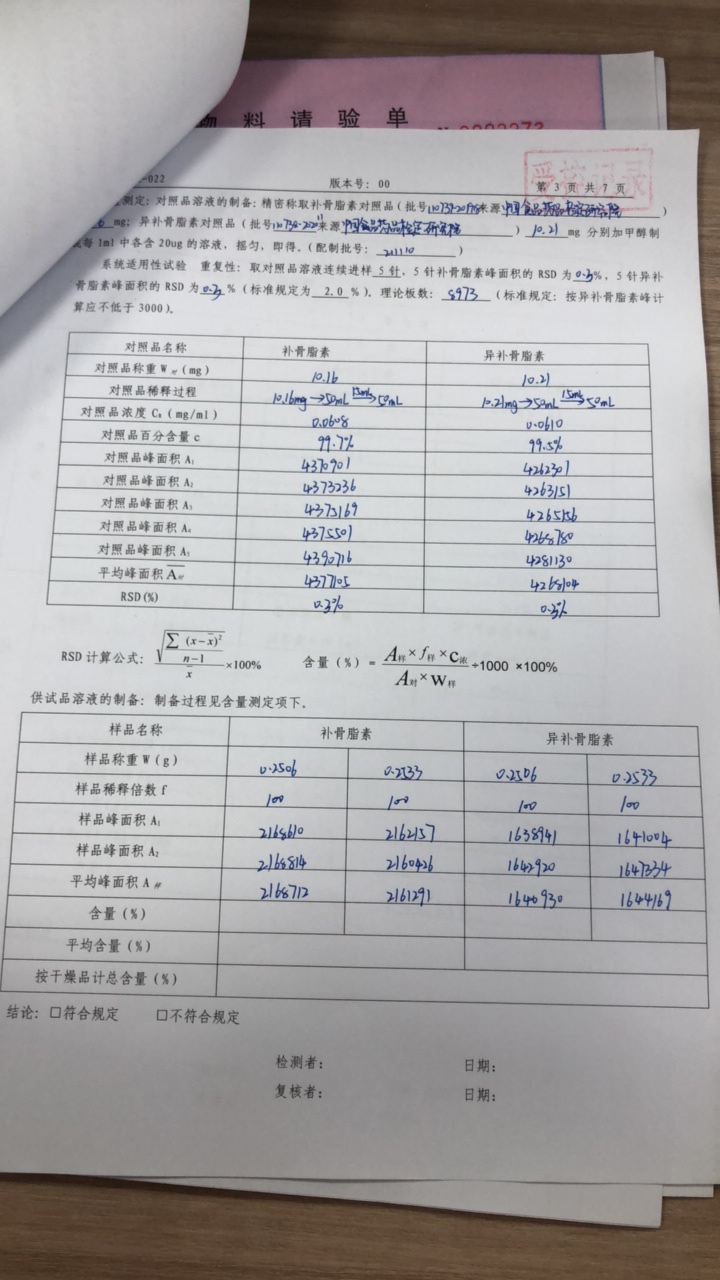 物 料 请 验 单
-022 版本号：00 第 3 页 共 7 页
测定：对照品溶液的制备：精密称取补骨脂素对照品（批号 来源 中国食品药品检定研究院 ）
mg；异补骨脂素对照品（批号 来源 中国食品药品检定研究院 ） 10.21 mg 分别加甲醇制
每 1ml 中各含 20ug 的溶液，摇匀，即得。（配制批号： 211110 ）
系统适用性试验 重复性：取对照品溶液连续进样 5 针，5 针补骨脂素峰面积的 RSD 为 0.3%，5 针异补
骨脂素峰面积的 RSD 为 0.3 %（标准规定为 2.0 %）。理论板数： 8973 （标准规定：按异补骨脂素峰计
算应不低于 3000）。
对照品名称 补骨脂素 异补骨脂素
对照品称重 W对（mg） 10.16 10.21
对照品稀释过程 10.16mg→50mL 15mL→50mL 10.21mg→50mL 15mL→50mL
对照品浓度 C（mg/ml） 0.0608 0.0610
对照品百分含量 c 99.7% 99.5%
对照品峰面积 A₁ 4370901 4262301
对照品峰面积 A₂ 4373236 4263151
对照品峰面积 A₃ 4375169 4265156
对照品峰面积 A₄ 4375501 4268780
对照品峰面积 A₅ 4390716 4281130
平均峰面积 A对 4377105 4268104
RSD(%) 0.3% 0.3%
RSD 计算公式：√(∑(x-x̄)²/n-1)/x̄ ×100% 含量（%）= A样×f样×C浓/A对×W样 ÷1000 ×100%
供试品溶液的制备：制备过程见含量测定项下。
样品名称 补骨脂素 异补骨脂素
样品称重 W（g） 0.2506 0.2533 0.2506 0.2533
样品稀释倍数 f 100 100 100 100
样品峰面积 A₁ 2168610 2162157 1638941 1641004
样品峰面积 A₂ 2168814 2160426 1642920 1647334
平均峰面积 A样 2168712 2161291 1640930 1644169
含量（%）
平均含量（%）
按干燥品计总含量（%）
结论：□符合规定 □不符合规定
检测者： 日期：
复核者： 日期：